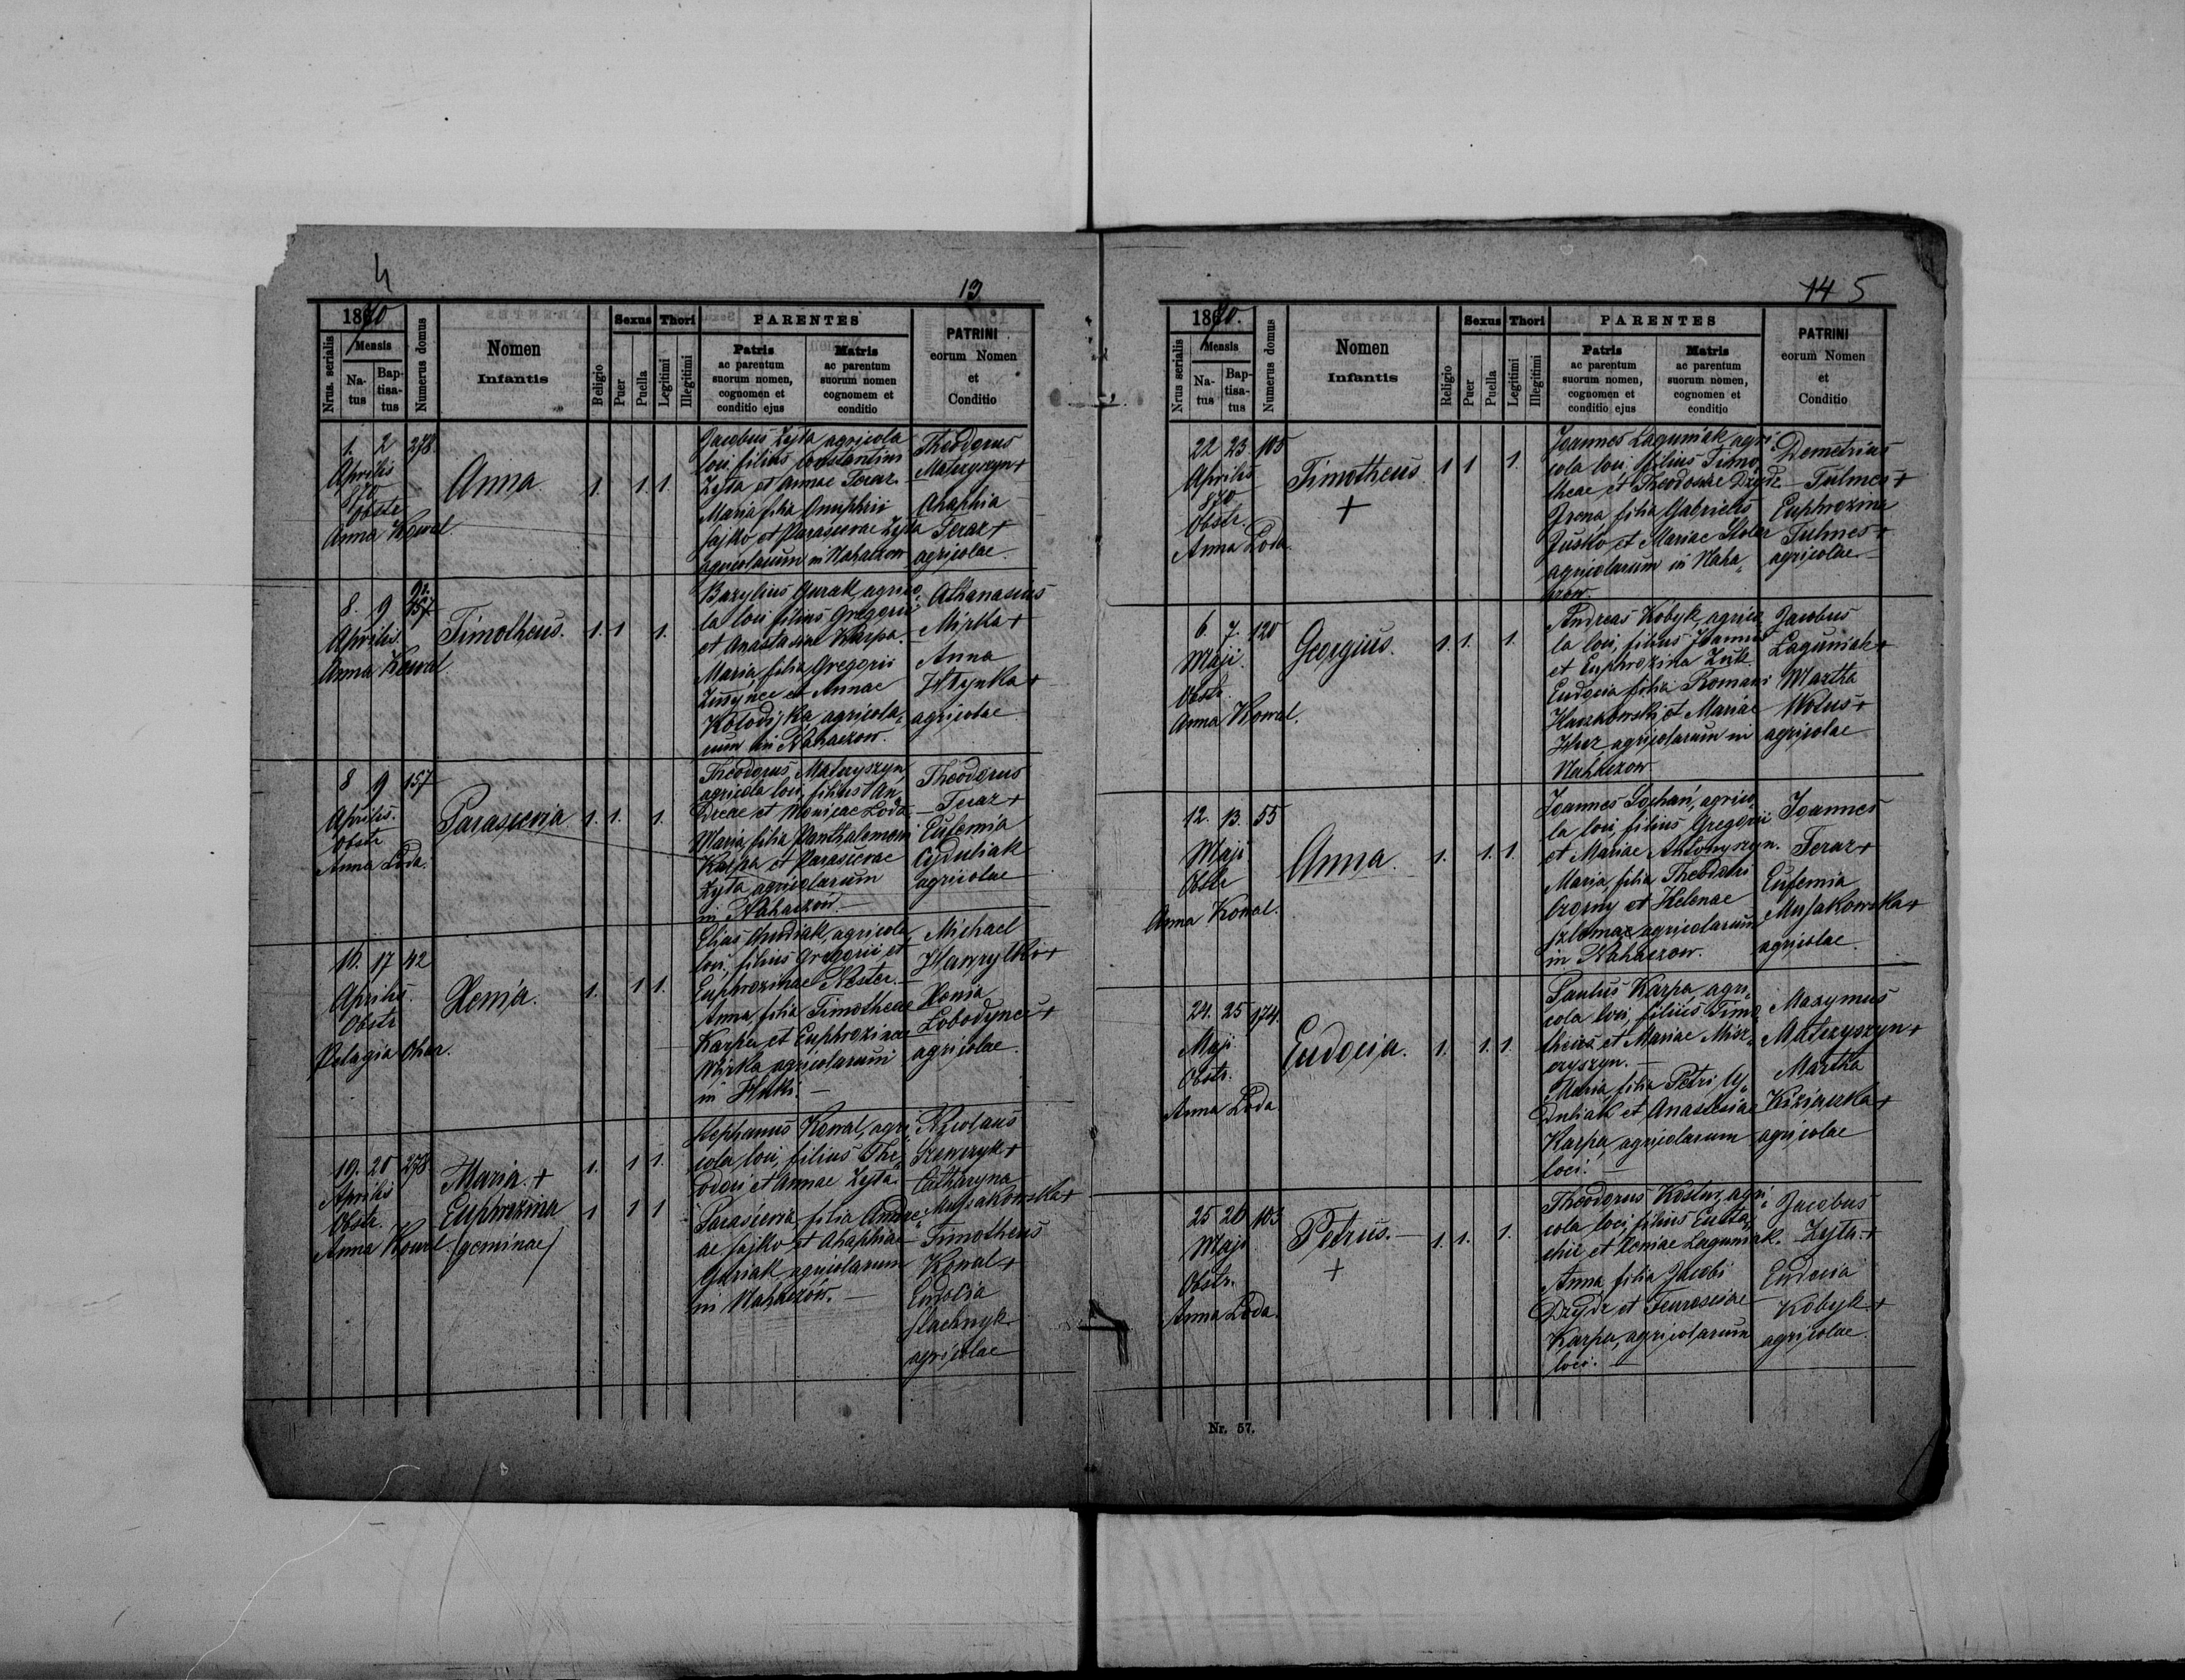 4
13
1870
Nrus. serialis
Mensis
Na-
tus
Bap-
tisa-
tus
Numerus domus
Nomen
Infantis
Religio
Sexus
Puer
Puella
Thori
Legitimi
Illegitimi
PARENTES
Patris
ac parentum
suorum nomen,
cognomen et
conditio ejus
Matris
ac parentum
suorum nomen
cognomem et
conditio
PATRINI
eorum Nomen
et
Conditio
1. 2 278.
Aprilis
870
Obstr
Anna Kowal
Anna
1. 1. 1.
Jacobus Zyta agricola
loci, filius Constantini
Zyta et Annae Teraz.
Maria filia Onuphrii
Sajko et Parascevae Zyta
agricolarum in Nahaczow
Theodorus
Matczyszyn +
Ahaphia
Teraz +
agricolae
8. 9 157
Aprilis.
Anna Kowal
Timotheus.
1. 1 1.
Bazylius Gurak, agrico-
la loci filius Gregorii
et Anastasiae Karpa.
Maria, filia Gregorii
et Annae
agricola-
rum in Nahaczow.
Athanasius
Mirka +
Anna
Hrynka +
agricolae
8 9 157
Aprilis.
Obstr
Anna Loda.
Parascevia
1. 1. 1.
Theodorus Matczyszyn,
agricola loci, filius An-
dreae et Monicae Loda
Maria, filia Panthalemoni
Karpa et Parascevae
Zyta agricolarum
in Nahaczow.
Theodorus
Teraz +
Eufemia
Cyduliak
agricolae
16. 17 42
Aprilis.
Obstr
Pelagia
Xenia.
1. 1 1.
Elias Andriak, agricola
loci, filius Gregorii et
Euphrozinae Nester.
Anna filia Timotheae
Karpa et Euphrozinae
Mirka agricolarum
in Hutki.
Michael
Hawrylko +
Xenia
Lobodynec +
agricolae.
19. 20 278
Aprilis
Obstr.
Anna Kowal
Maria. +
Euphrozina
(geminae)
1. 1 1.
1 1 1
Stephanus Kowal, agri-
cola loci, filius The-
odori et Annae Zyta.
Parascevia, filia Andre-
ae Sajko et Ahaphiae
Guriak agricolarum
in Nahaczów.
Nicolaus
Szewczyk +
Catharyna
Musiakowska +
Timotheus
Kowal +
Eudocia
Slachnyk
agricolae
14 5
1870.
Nrus serialis
Mensis
Na-
tus
Bap-
tisa-
tus
Numerus domus
Nomen
Infantis
Religio
Sexus
Puer
Puella
Thori
Legitimi
Illegitimi
PARENTES
Patris
ac parentum
suorum nomen,
cognomen et
conditio ejus
Matris
ac parentum
suorum nomen,
cognomen et
conditio
PATRINI
eorum Nomen
et
Conditio
22 23 108
Aprilis
870
Obstr.
Anna Loda
Timotheus
+
1 1 1.
Joannes Laguniak, agri-
cola loci, filius Timo-
theae et Theodosiae Dzydz
Irena filia Gabrielis
Jusko et Mariae Stolar
agricolarum in Naha-
czow.
Demetrius
Tulmes +
Euphrozina
Tulmes +
agricolae
6. 7. 120
Maji.
Obstr.
Anna Kowal.
Georgius.
1. 1. 1.
Andreas Kobyk, agrico-
la loci, filius Joannis
et Euphrozina Zuk.
Eudocia filia Romani
Haczkowski et Mariae
agricolarum in
Nahaczow
Jacobus
Laguniak +
Martha
Wolus +
agricolae
12. 13. 55
Maji
Obstr
Anna Kowal.
Anna.
1. 1. 1.
Joannes Lochań, agrico-
la loci, filius Gregorii
et Mariae Antonyszyn.
Maria, filia Theodori
Czorny et Helenae
Szlemaz agricolarum
in Nahaczow.
Joannes
Teraz +
Eufemia
Musakowska +
agricolae.
24. 25 174.
Maji.
Obstr.
Anna Loda
Eudocia.
1. 1. 1.
Paulus Karpa, agri-
cola loci, filius Timo-
theus et Mariae Misz-
czyszyn.
Maria, filia Petri Cy-
duliak et Anastasiae
Karpa, agricolarum
loci.
Maxymus
Matczyszyn +
Martha
+
agricolae
25 26 103
Maji
Obstr.
Anna Loda.
Petrus.
+
1. 1. 1.
Theodorus Kostur, agri-
cola loci, filius Eusta-
chii et Xeniae Laguniak.
Anna filia Jacobi
Dzydz et Feurosciae
Karpa, agricolarum
loci.
Jacobus
Zyta. +
Eudocia
Kobyk +
agricolae.
Nr. 57.